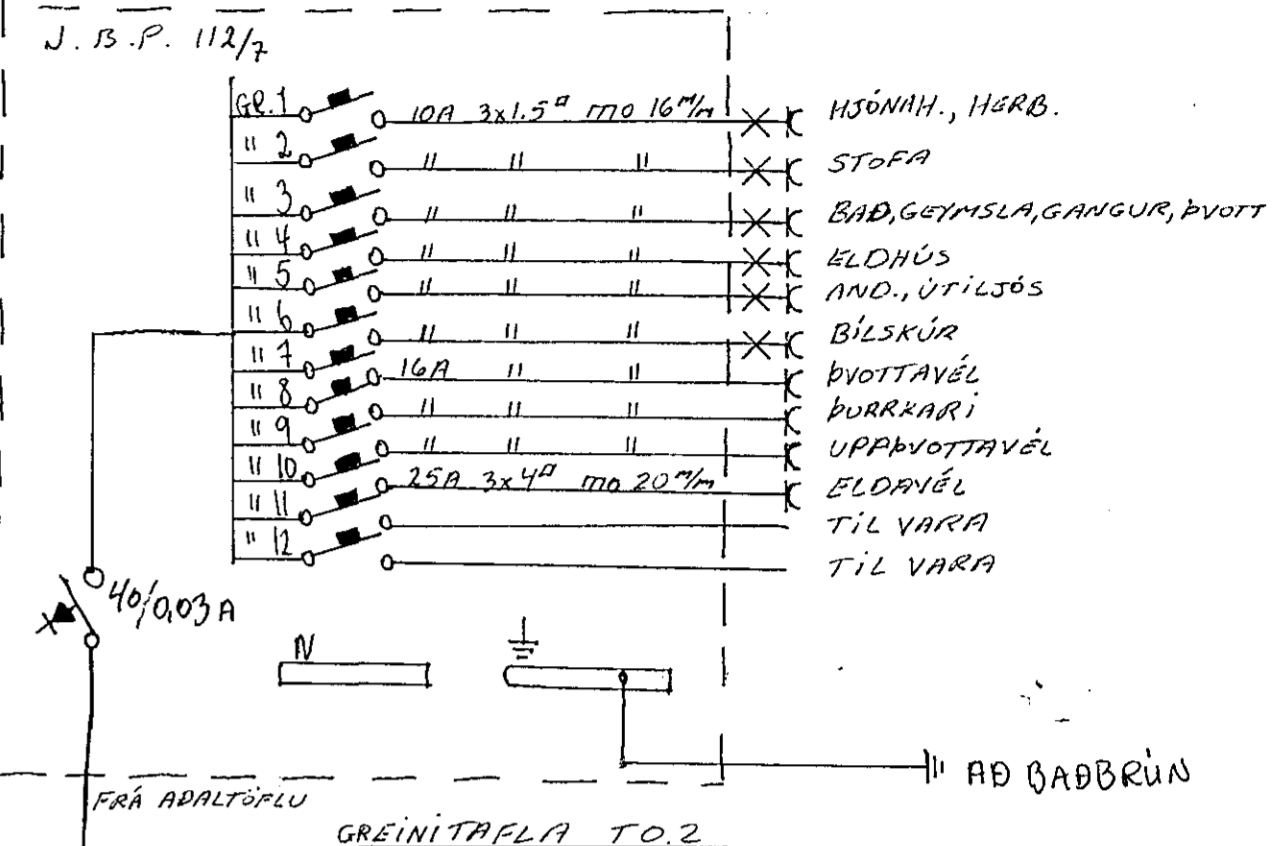 J.B.P. 112/7
GR.1 10A 3x1.5▫ mo 16 m/m HJÓNAH., HERB.
" 2 " " " STOFA
" 3 " " " BAÐ,GEYMSLA,GANGUR,ÞVOTT
" 4 " " " ELDHÚS
" 5 " " " AND., ÚTILJÓS
" 6 " " " BÍLSKÚR
" 7 16A " " ÞVOTTAVÉL
" 8 " " " ÞURRKARI
" 9 " " " UPPÞVOTTAVÉL
" 10 25A 3x4▫ mo 20 m/m ELDAVÉL
" 11 TIL VARA
" 12 TIL VARA
40/0,03A
N
AÐ BAÐBRÚN
FRÁ AÐALTÖFLU
GREINITAFLA TO.2